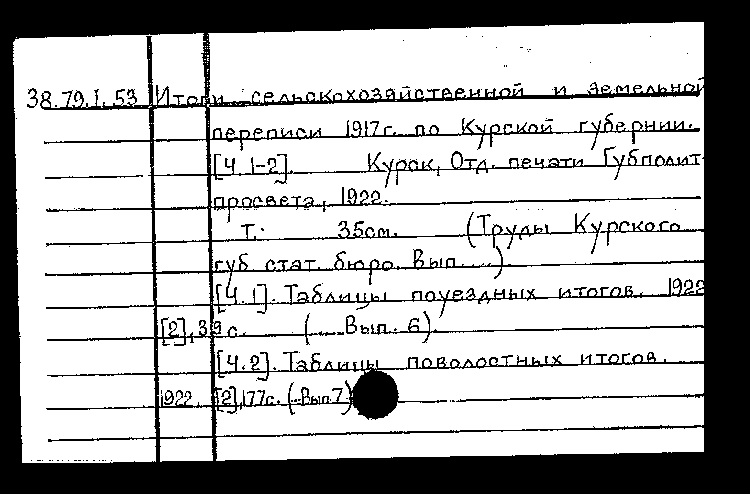 38.79.I.53 Итоги сельскохозяйственной и земельной
переписи 1917г. по Курской губернии.
[Ч. 1-2]. Курск, Отд. печати Губполит-
просвета, 1922.
Т.: 35см. (Труды Курского
губ. стат. бюро. Вып. ...)
[Ч.1]. Таблицы поуездных итогов. 1922
[2], 39 с. (... Вып. 6).
[Ч.2]. Таблицы поволостных итогов.
1922. [2], 177с. (...Вып.7)